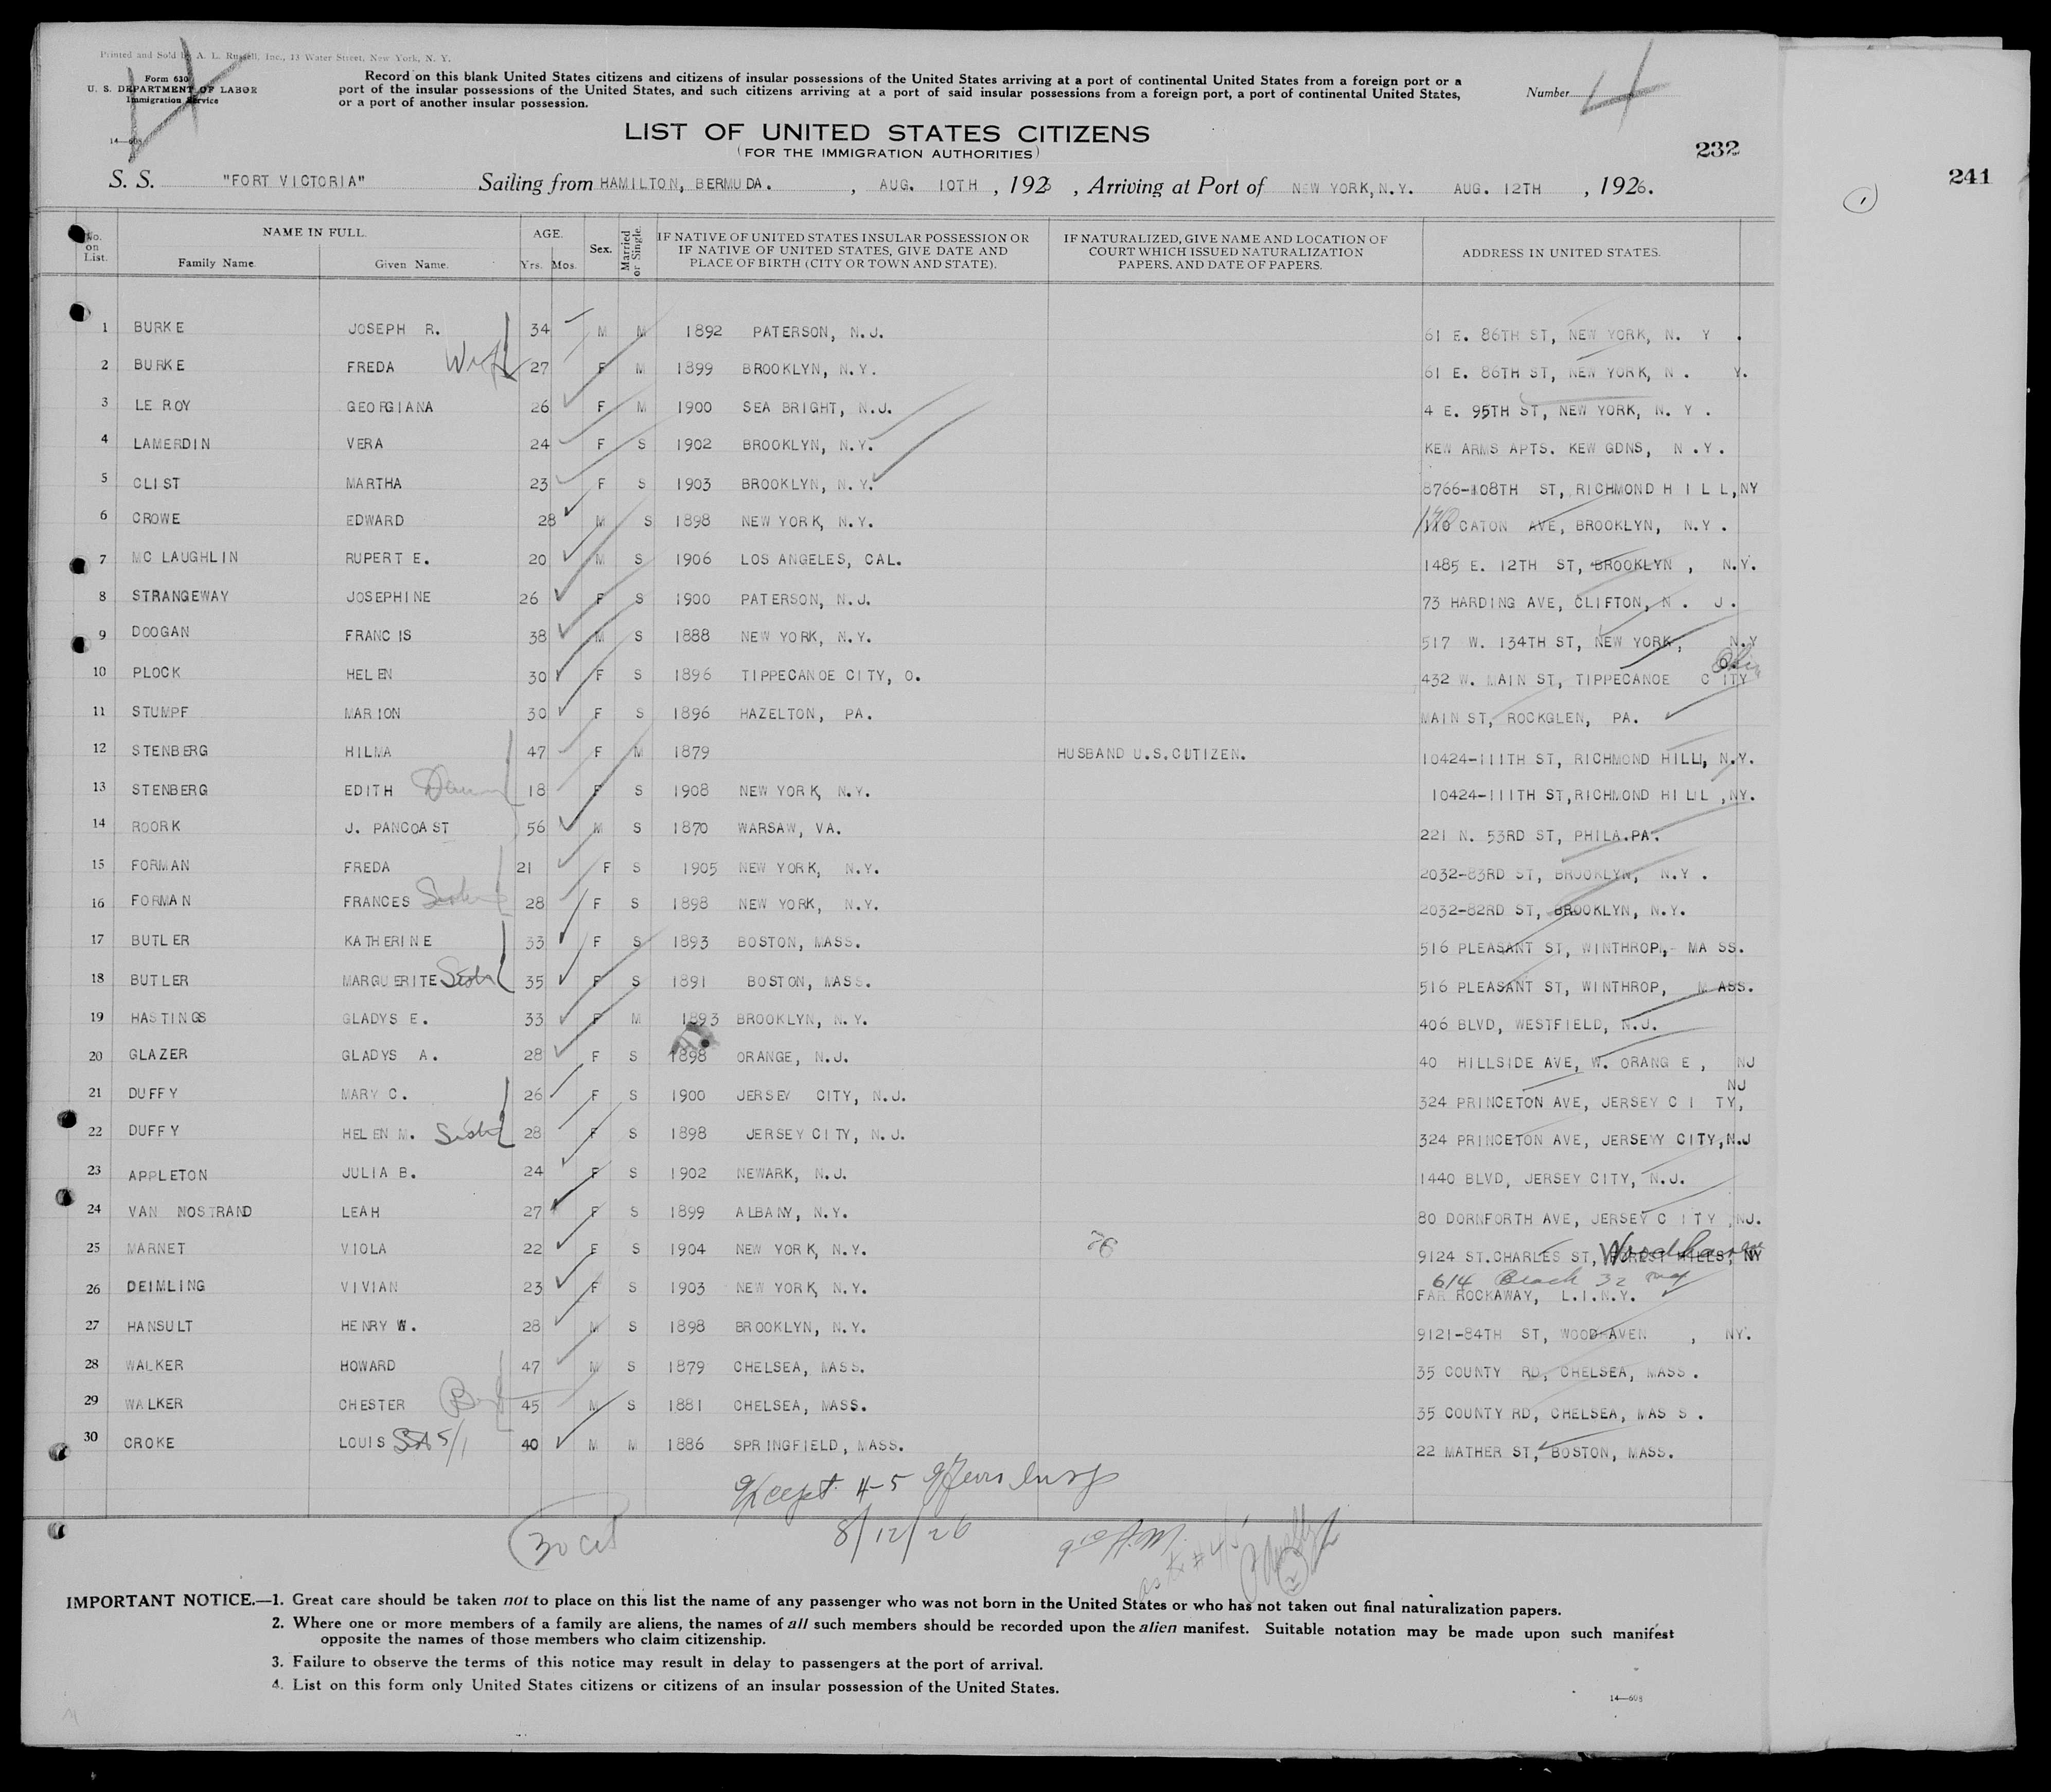 Printed and Sold by A. L. Russell, Inc., 13 Water Street, New York, N. Y.
Form 630
U. S. DEPARTMENT OF LABOR
Immigration Service
14—608
4
Record on this blank United States citizens and citizens of insular possessions of the United States arriving at a port of continental United States from a foreign port or a
port of the insular possessions of the United States, and such citizens arriving at a port of said insular possessions from a foreign port, a port of continental United States,
or a port of another insular possession.
Number 4
LIST OF UNITED STATES CITIZENS
(FOR THE IMMIGRATION AUTHORITIES)
232
241
1
S. S. "FORT VICTORIA" Sailing from HAMILTON, BERMUDA. , AUG. 10TH , 1926 , Arriving at Port of NEW YORK, N.Y. AUG. 12TH , 1926.
No. on List. NAME IN FULL. Family Name. Given Name. AGE. Yrs. Mos. Sex. Married or Single. IF NATIVE OF UNITED STATES INSULAR POSSESSION OR IF NATIVE OF UNITED STATES, GIVE DATE AND PLACE OF BIRTH (CITY OR TOWN AND STATE). IF NATURALIZED, GIVE NAME AND LOCATION OF COURT WHICH ISSUED NATURALIZATION PAPERS, AND DATE OF PAPERS. ADDRESS IN UNITED STATES.
1 BURKE JOSEPH R. 34 M M 1892 PATERSON, N.J. 61 E. 86TH ST, NEW YORK, N. Y .
2 BURKE FREDA Wife 27 F M 1899 BROOKLYN, N.Y. 61 E. 86TH ST, NEW YORK, N . Y.
3 LE ROY GEORGIANA 26 F M 1900 SEA BRIGHT, N.J. 4 E. 95TH ST, NEW YORK, N. Y .
4 LAMERDIN VERA 24 F S 1902 BROOKLYN, N.Y. KEW ARMS APTS. KEW GDNS, N .Y.
5 CLIST MARTHA 23 F S 1903 BROOKLYN, N.Y. 8766-108TH ST, RICHMOND H I L L, NY
6 CROWE EDWARD 28 M S 1898 NEW YORK, N.Y. 110 CATON AVE, BROOKLYN, N.Y.
7 MC LAUGHLIN RUPERT E. 20 M S 1906 LOS ANGELES, CAL. 1485 E. 12TH ST, BROOKLYN , N.Y.
8 STRANGEWAY JOSEPHINE 26 F S 1900 PATERSON, N.J. 73 HARDING AVE, CLIFTON, N . J.
9 DOOGAN FRANCIS 38 M S 1888 NEW YORK, N.Y. 517 W. 134TH ST, NEW YORK, N.Y
10 PLOCK HELEN 30 F S 1896 TIPPECANOE CITY, O. 432 W. MAIN ST, TIPPECANOE C ITY O. Ohio
11 STUMPF MARION 30 F S 1896 HAZELTON, PA. MAIN ST, ROCKGLEN, PA.
12 STENBERG HILMA 47 F M 1879 HUSBAND U.S.CUTIZEN. 10424-111TH ST, RICHMOND HILLI, N.Y.
13 STENBERG EDITH 18 F S 1908 NEW YORK, N.Y. 10424-111TH ST,RICHMOND HILLL ,NY.
14 ROORK J. PANCOAST 56 M S 1870 WARSAW, VA. 221 N. 53RD ST, PHILA.PA.
15 FORMAN FREDA 21 F S 1905 NEW YORK, N.Y. 2032-83RD ST, BROOKLYN, N.Y .
16 FORMAN FRANCES Sister 28 F S 1898 NEW YORK, N.Y. 2032-82RD ST, BROOKLYN, N.Y.
17 BUTLER KATHERINE 33 F S 1893 BOSTON, MASS. 516 PLEASANT ST, WINTHROP,- MA SS.
18 BUTLER MARGUERITE Sister 35 F S 1891 BOSTON, MASS. 516 PLEASANT ST, WINTHROP, M ASS.
19 HASTINGS GLADYS E. 33 F M 1893 BROOKLYN, N.Y. 406 BLVD, WESTFIELD, N.J.
20 GLAZER GLADYS A. 28 F S 1898 ORANGE, N.J. 40 HILLSIDE AVE, W. ORANG E , NJ
21 DUFFY MARY C. 26 F S 1900 JERSEY CITY, N.J. 324 PRINCETON AVE, JERSEY C I TY, NJ
22 DUFFY HELEN M. Sister 28 F S 1898 JERSEY CITY, N.J. 324 PRINCETON AVE, JERSEYY CITY,N.J
23 APPLETON JULIA B. 24 F S 1902 NEWARK, N.J. 1440 BLVD, JERSEY CITY, N.J.
24 VAN NOSTRAND LEAH 27 F S 1899 ALBANY, N.Y. 80 DORNFORTH AVE, JERSEY C ITY ,NJ.
25 MARNET VIOLA 22 F S 1904 NEW YORK, N.Y. 9124 ST.CHARLES ST, FOREST HILLS, NY Woodhaven
26 DEIMLING VIVIAN 23 F S 1903 NEW YORK, N.Y. 614 Beach 32 FAR ROCKAWAY, L.I.N.Y.
27 HANSULT HENRY W. 28 M S 1898 BROOKLYN, N.Y. 9121-84TH ST, WOODHAVEN , NY.
28 WALKER HOWARD 47 M S 1879 CHELSEA, MASS. 35 COUNTY RD, CHELSEA, MASS .
29 WALKER CHESTER 45 M S 1881 CHELSEA, MASS. 35 COUNTY RD, CHELSEA, MAS S .
30 CROKE LOUIS 40 M M 1886 SPRINGFIELD, MASS. 22 MATHER ST, BOSTON, MASS.
Except 4-5
30 cit
8/12/26
IMPORTANT NOTICE.—1. Great care should be taken not to place on this list the name of any passenger who was not born in the United States or who has not taken out final naturalization papers.
2. Where one or more members of a family are aliens, the names of all such members should be recorded upon the alien manifest. Suitable notation may be made upon such manifest
opposite the names of those members who claim citizenship.
3. Failure to observe the terms of this notice may result in delay to passengers at the port of arrival.
4. List on this form only United States citizens or citizens of an insular possession of the United States.
14—608